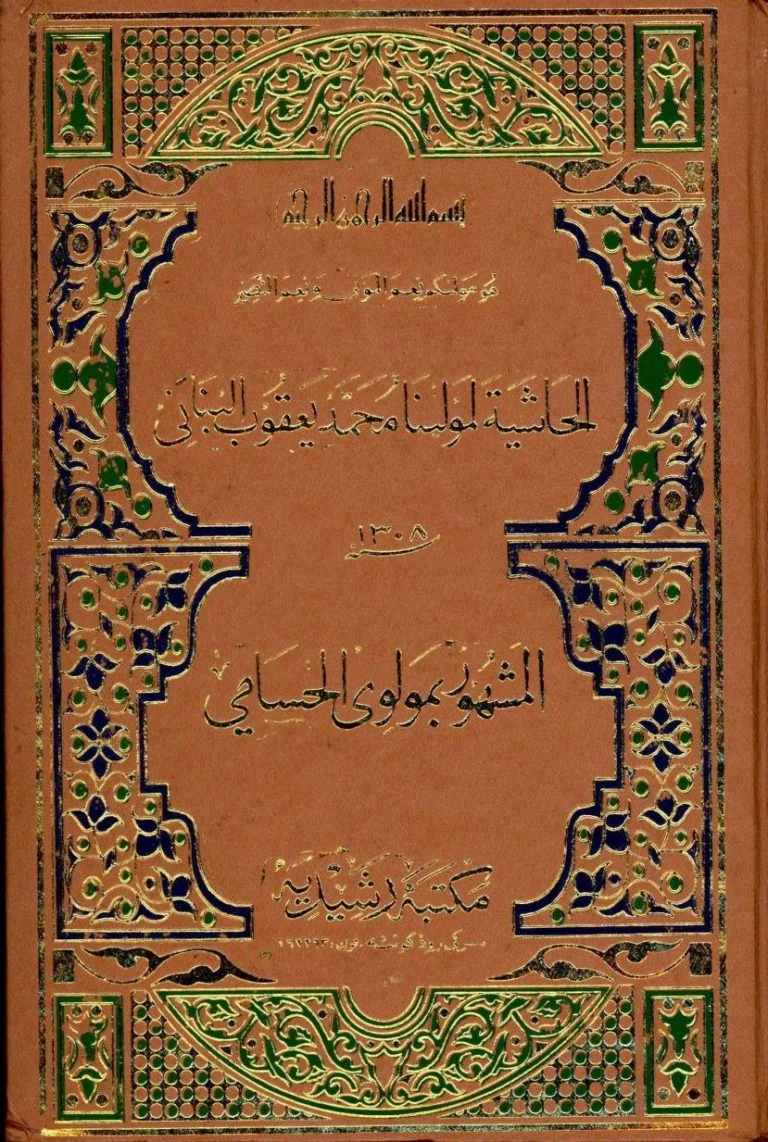 بسم الله الرحمن الرحيم
هو مولكم نعم المولى و نعم النصير
الحاشية لمولينا محمد يعقوب البناني
سنه ۱۳۰۸
المشهور بمولوى الحسامي
مكتبة رشيدية
سركى رود كوئٹه